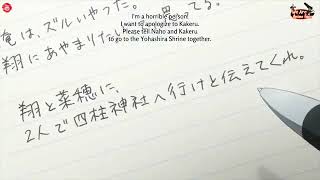 I'm a horrible person!
I want to apologize to Kakeru.
Please tell Naho and Kakeru
to go to the Yohashira Shrine together.
俺は、ズルいやった。
翔にあやまり
翔と菜穂に、
2人で四柱神社へ行けと伝えてくれ。